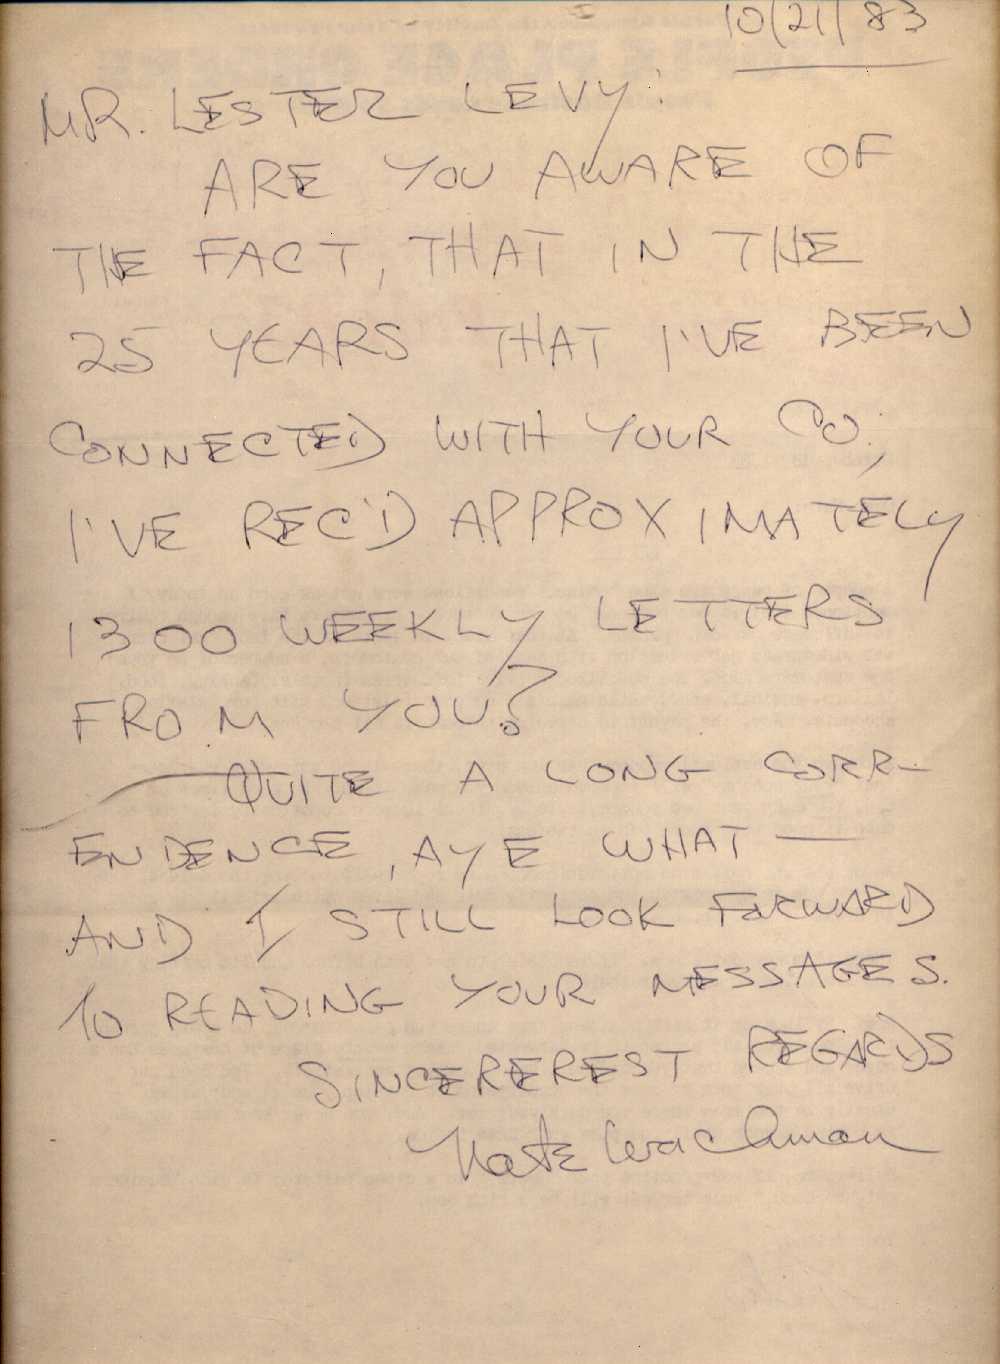 10/21/83
MR. LESTER LEVY:
ARE YOU AWARE OF
THE FACT, THAT IN THE
25 YEARS THAT I'VE BEEN
CONNECTED WITH YOUR CO.,
I'VE REC'D APPROXIMATELY
1300 WEEKLY LETTERS
FROM YOU?
QUITE A LONG CORR-
ENDENCE, AYE WHAT —
AND I STILL LOOK FORWARD
TO READING YOUR MESSAGES.
SINCEREREST REGARDS
Wachman